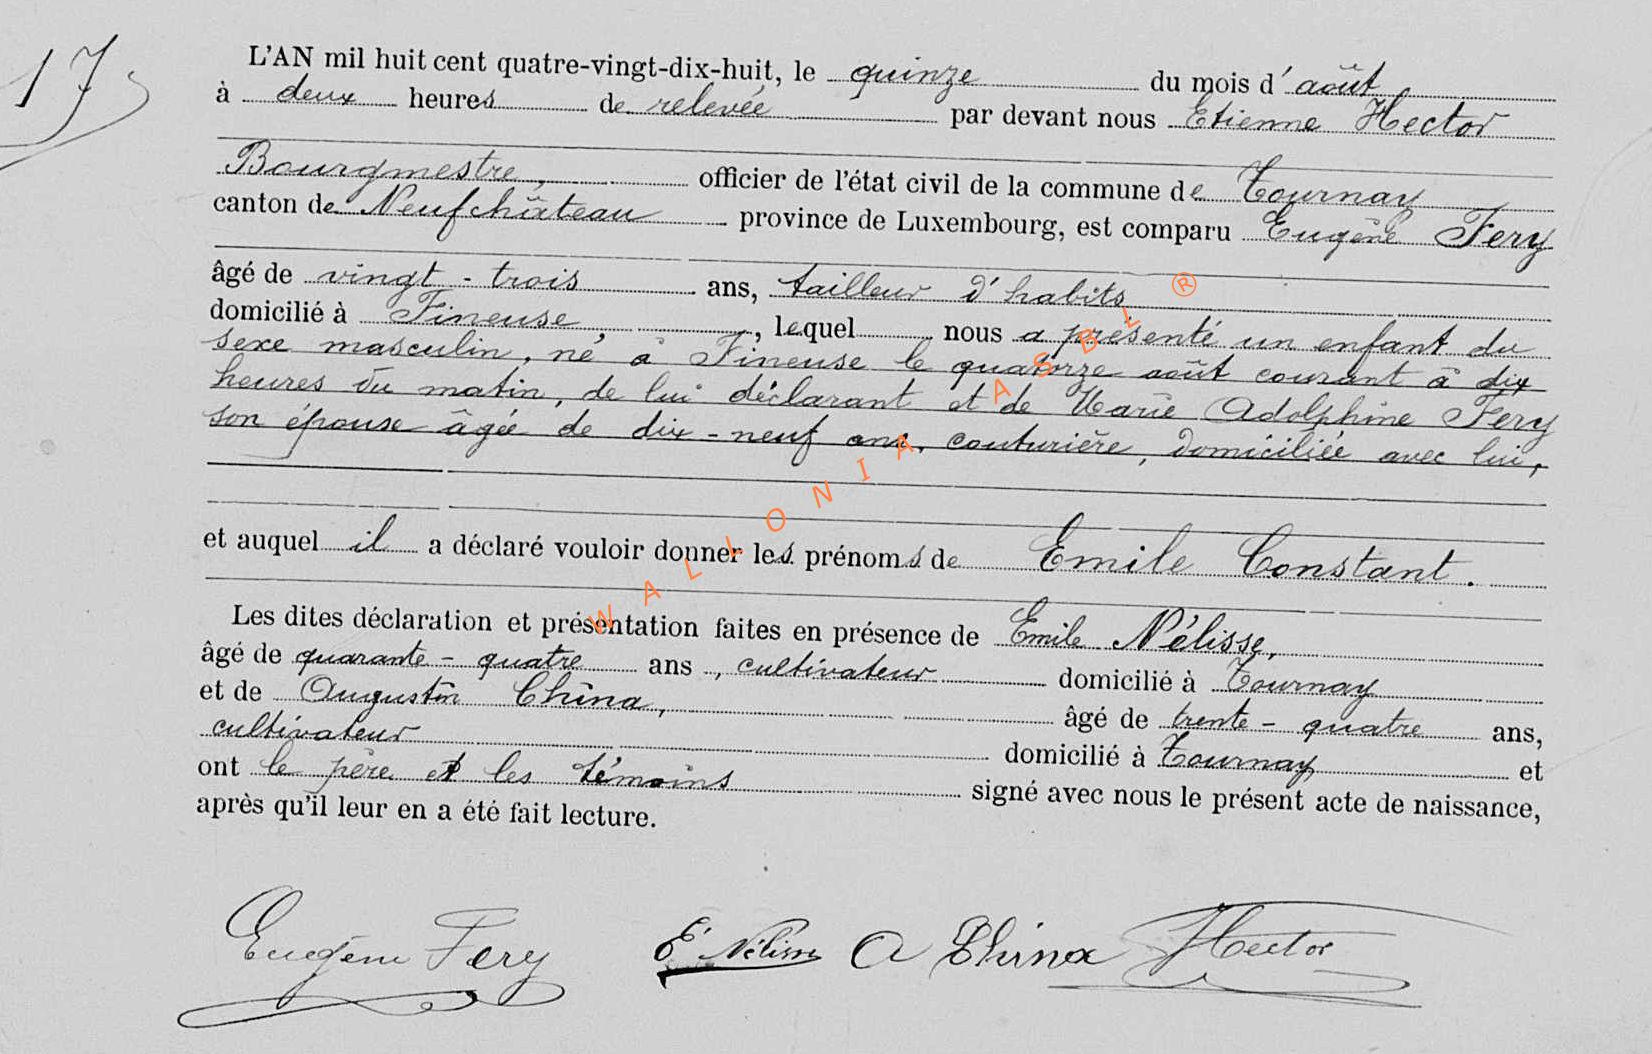 17
L'AN mil huit cent quatre-vingt-dix-huit, le quinze du mois d'août
à deux heures de relevée par devant nous Etienne Hector
Bourgmestre, officier de l'état civil de la commune de Tournay
canton de Neufchâteau province de Luxembourg, est comparu Eugène Fery
âgé de vingt-trois ans, tailleur d'habits
domicilié à Fineuse, , lequel nous a présenté un enfant du
sexe masculin, né à Fineuse le quatorze août courant à dix
heures du matin, de lui déclarant et de Marie Adolphine Fery
son épouse âgée de dix-neuf ans, couturière, domiciliée avec lui,
et auquel il a déclaré vouloir donner les prénoms de Emile Constant.
Les dites déclaration et présentation faites en présence de Emile Nélisse,
âgé de quarante-quatre ans, cultivateur domicilié à Tournay
et de Augustin China, âgé de trente-quatre ans,
cultivateur domicilié à Tournay et
ont le père et les témoins signé avec nous le présent acte de naissance,
après qu'il leur en a été fait lecture.
Eugène Fery E Nélisse A China Hector
WALLONIA ASBL ®